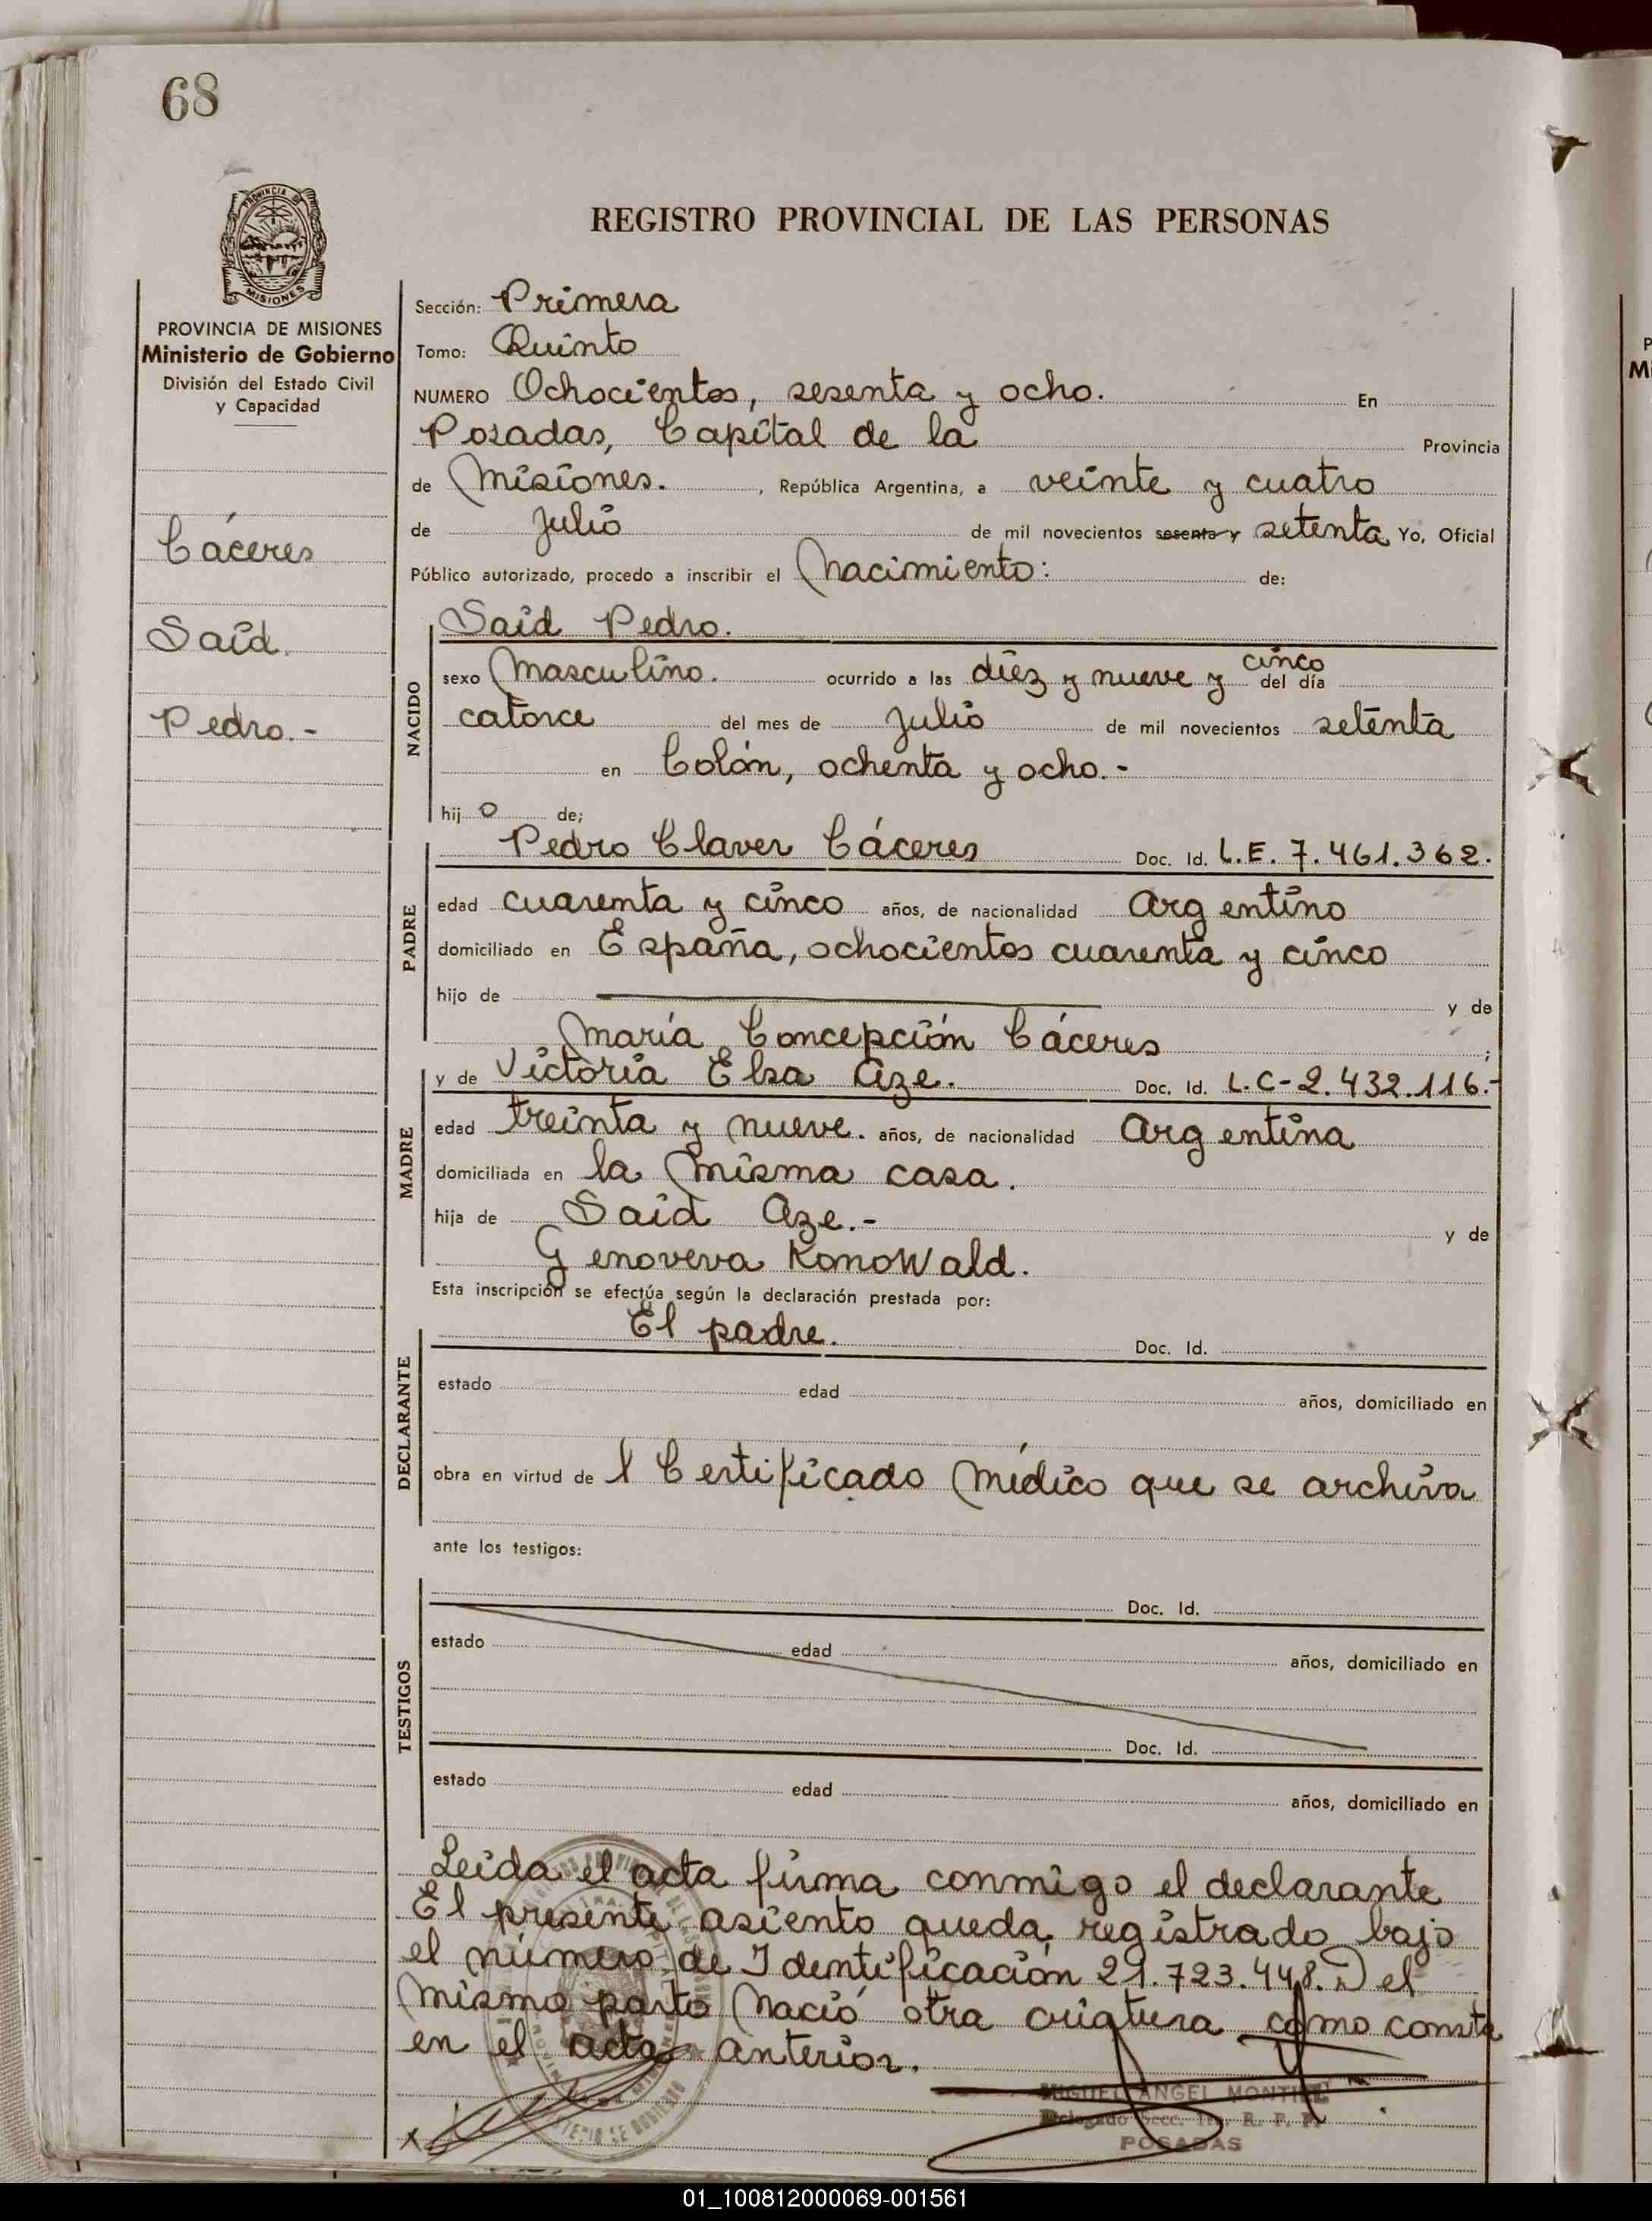 68
PROVINCIA DE MISIONES
PROVINCIA DE MISIONES
Ministerio de Gobierno
División del Estado Civil
y Capacidad
Cáceres
Said.
Pedro.-
REGISTRO PROVINCIAL DE LAS PERSONAS
Sección: Primera
Tomo: Quinto
NUMERO Ochocientos, sesenta y ocho. En
Posadas, Capital de la Provincia
de Misiones. , República Argentina, a veinte y cuatro
de Julio de mil novecientos sesenta y setenta Yo, Oficial
Público autorizado, procedo a inscribir el Nacimiento: de:
NACIDO
Said Pedro.
sexo Masculino. ocurrido a las diez y nueve y cinco del día
catorce del mes de Julio de mil novecientos setenta
en Colón, ochenta y ocho.-
hij o de;
PADRE
Pedro Claver Cáceres Doc. Id. L.E. 7.461.362.
edad cuarenta y cinco años, de nacionalidad Argentino
domiciliado en España, ochocientos cuarenta y cinco
hijo de y de
María Concepción Cáceres ;
MADRE
y de Victoria Elsa Aze. Doc. Id. L.C-2.432.116.-
edad treinta y nueve. años, de nacionalidad Argentina
domiciliada en la misma casa.
hija de Said Aze.- y de
Genoveva KonoWald.
Esta inscripción se efectúa según la declaración prestada por:
DECLARANTE
El padre. Doc. Id.
estado edad años, domiciliado en
obra en virtud de l Certificado Médico que se archiva
ante los testigos:
TESTIGOS
Doc. Id.
estado edad años, domiciliado en
Doc. Id.
estado edad años, domiciliado en
Leida el acta firma conmigo el declarante
El presente asiento queda registrado bajo
el número de Identificación 21.723.448. Del
mismo parto Nació otra criatura como consta
en el acta anterior.
MIGUEL ANGEL MONTIEL
Delegado Secc. 1ra. R. P. P.
POSADAS
01_100812000069-001561